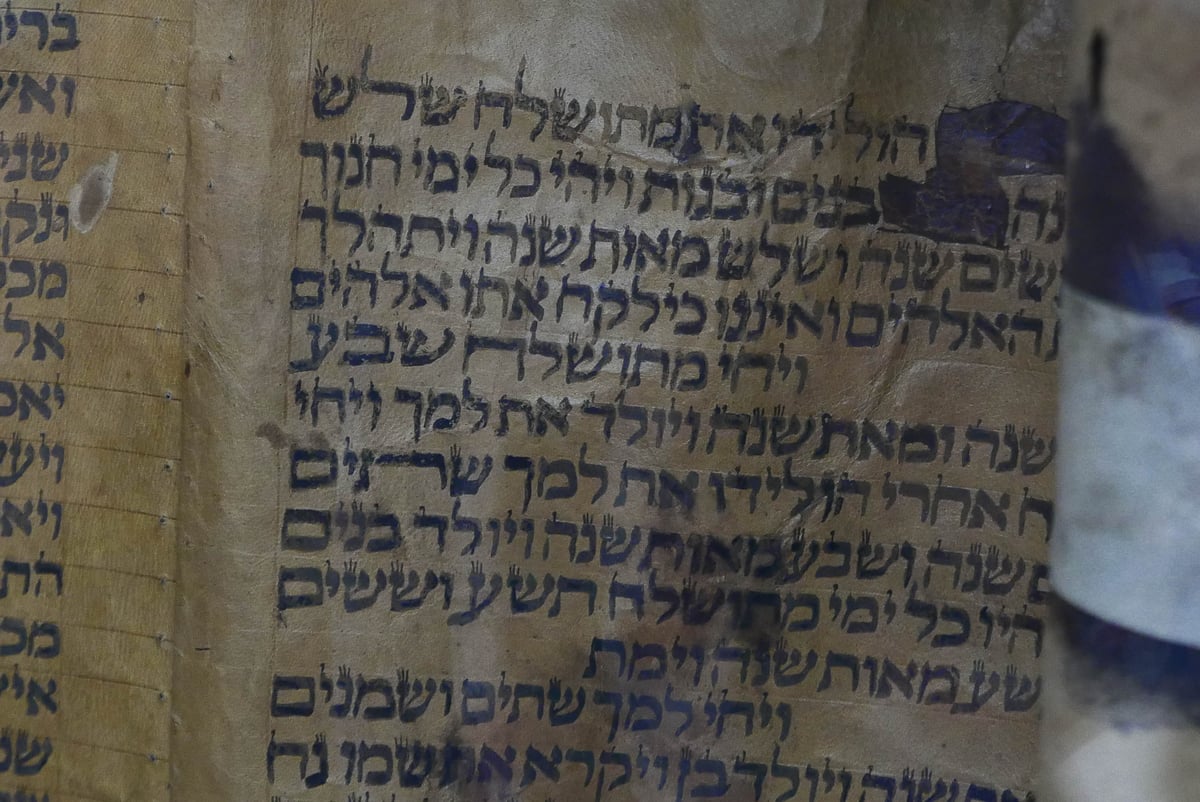 הולידו את מתושלח שלש
נה בנים ובנות ויהי כל ימי חנוך
שים שנה ושלש מאות שנה ויתהלך
האלהים ואיננו כי לקח אתו אלהים
ויחי מתושלח שבע
שנה ומאת שנה ויולד את למך ויחי
ח אחרי הולידו את למך שתים
ם שנה ושבע מאות שנה ויולד בנים
היו כל ימי מתושלח תשע וששים
שע מאות שנה וימת
ויחי למך שתים ושמנים
שנה ויולד בן ויקרא את שמו נח
ואש
שני
מכי
אל
ויע
ויא
הת
מכ